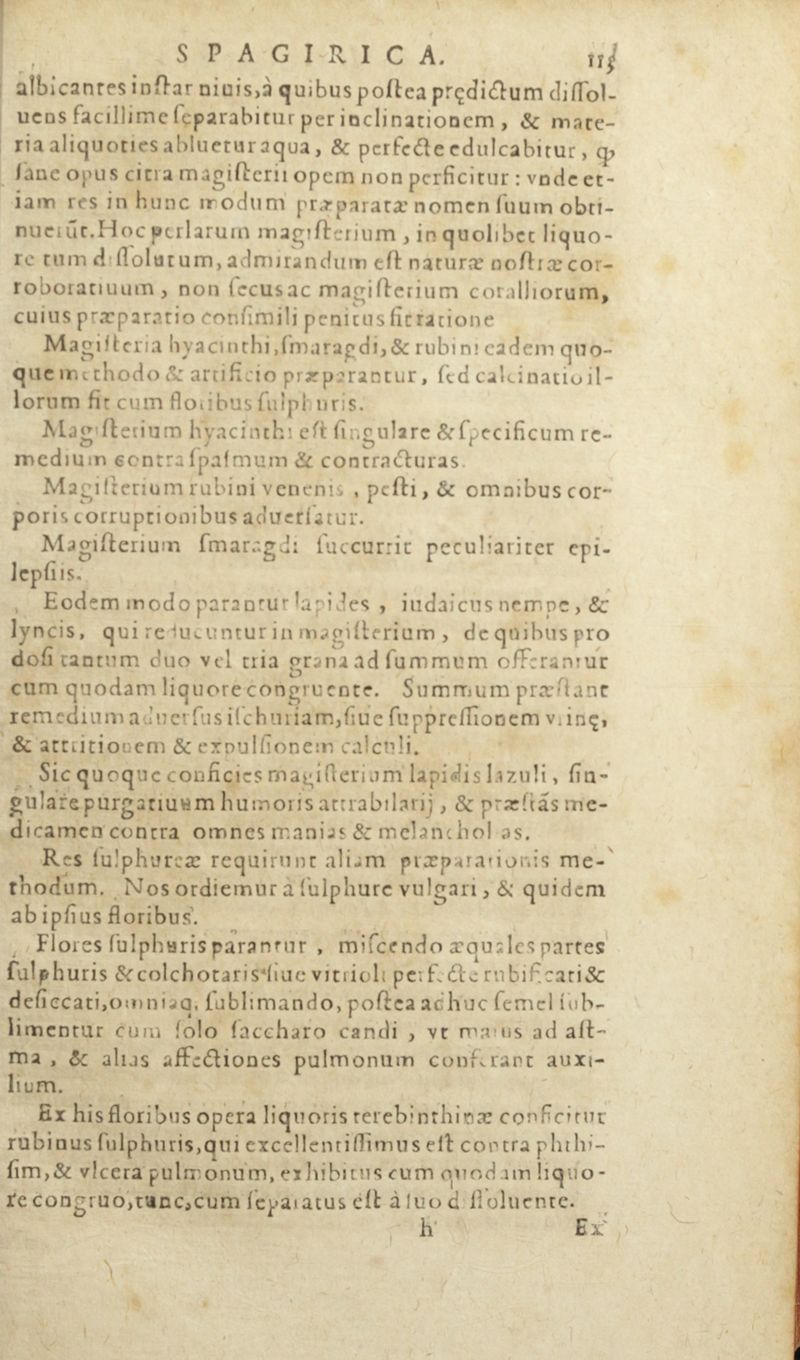 SPAGIRICA. 113
albicantes inſtar niuis,à quibus poſtea prędictum diſſol-
uens facillime ſeparabitur per inclinationem, & mate-
ria aliquoties abluetur aqua, & perfecte edulcabitur, ꝙ
ſane opus citra magiſterii opem non perficitur : vnde et-
iam res in hunc modum præparatæ nomen ſuum obti-
nuerūt. Hoc perlarum magiſterium, in quolibet liquo-
re tum diſſolutum, admirandum eſt naturæ noſtræ cor-
roboratiuum, non ſecus ac magiſterium coralliorum,
cuius præparatio conſimili penitus fit ratione
Magiſteria hyacinthi, ſmaragdi, & rubini eadem quo-
que methodo & artificio præparantur, ſed calcinatio il-
lorum fit cum floribus ſulphuris.
Magiſterium hyacinthi eſt ſingulare & ſpecificum re-
medium contra ſpaſmum & contracturas.
Magiſterium rubini venenis, peſti, & omnibus cor-
poris corruptionibus aduerſatur.
Magiſterium ſmaragdi ſuccurrit peculiariter epi-
lepſiis.
Eodem modo parantur lapides, iudaicus nempe, &
lyncis, qui reducuntur in magiſterium, de quibus pro
doſi tantum duo vel tria grana ad ſummum offerantur
cum quodam liquore congruente. Summum præſtant
remedium aduerſus iſchuriam, ſiue ſuppreſſionem vrinę,
& attritionem & expulſionem calculi.
Sic quoque conficies magiſterium lapidis lazuli, ſin-
gulare purgatiuum humoris attrabilarij, & præſtās me-
dicamen contra omnes manias & melancholias.
Res ſulphureæ requirunt aliam præparationis me-
thodum. Nos ordiemur à ſulphure vulgari, & quidem
ab ipſius floribus.
Flores ſulphuris parantur, miſcendo æquales partes
ſulphuris & colchotaris ſiue vitrioli perfecte rubificati &
deſiccati, omniaq; ſublimando, poſtea adhuc ſemel ſub-
limentur cum ſolo ſaccharo candi, vt maius ad aſt-
ma, & alias affectiones pulmonum conferant auxi-
lium.
Ex his floribus opera liquoris terebinthinæ conficitur
rubinus ſulphuris, qui excellentiſſimus eſt contra phthi-
ſim, & vlcera pulmonum, exhibitus cum quodam liquo-
re congruo, tunc, cum ſeparatus eſt à ſuo diſſoluente.
h Ex